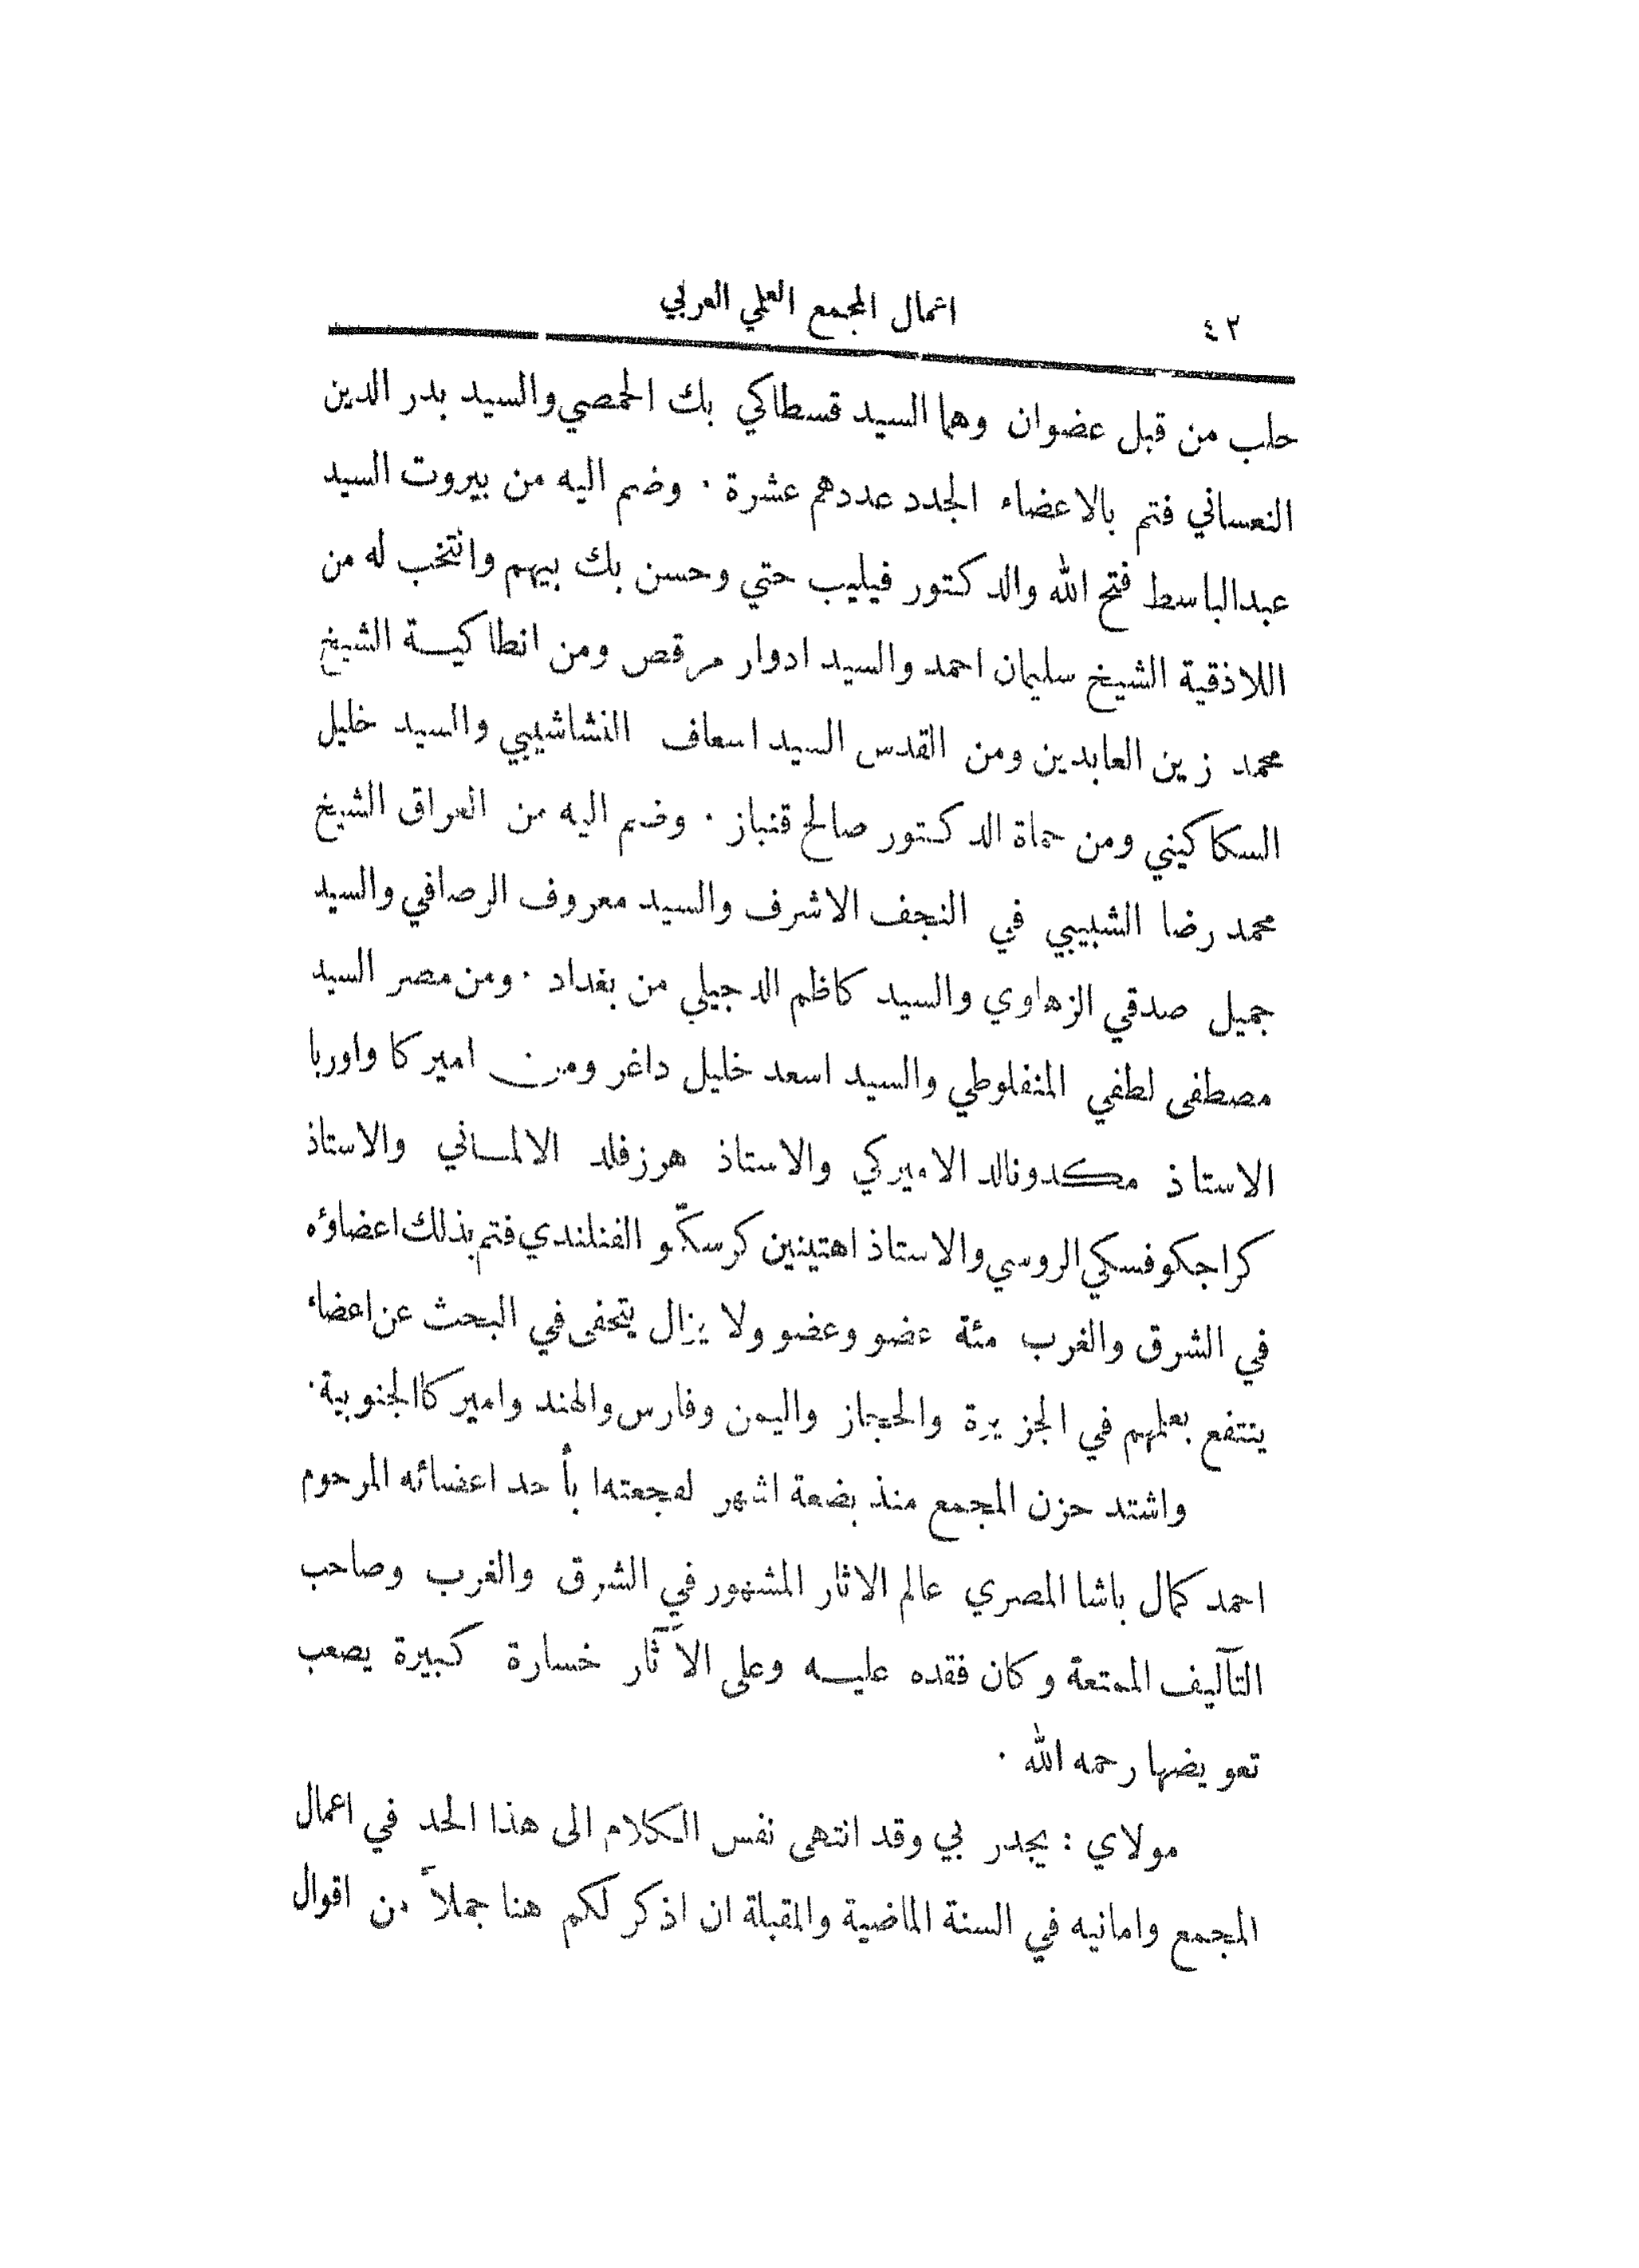 ٤٢
اعمال المجمع العلمي العربي
حلب من قبل عضوان وهما السيد قسطاكي بك الحمصي والسيد بدر الدين
النعساني فتم بالاعضاء الجدد عددهم عشرة . وضم اليه من بيروت السيد
عبدالباسط فتح الله والدكتور فيليب حتي وحسن بك بيهم وانتخب له من
اللاذقية الشيخ سليمان احمد والسيد ادوار مرقص ومن انطاكية الشيخ
محمد زين العابدين ومن القدس السيد اسعاف النشاشيبي والسيد خليل
السكاكيني ومن حماة الدكتور صالح قنباز . وضم اليه من العراق الشيخ
محمد رضا الشبيبي في النجف الاشرف والسيد معروف الرصافي والسيد
جميل صدقي الزهاوي والسيد كاظم الدجيلي من بغداد . ومن مصر السيد
مصطفى لطفي المنفلوطي والسيد اسعد خليل داغر ومن اميركا واوربا
الاستاذ مكدونالد الاميركي والاستاذ هرزفلد الالماني والاستاذ
كراجكوفسكي الروسي والاستاذ اهتينين كرسكّو الفنلندي فتم بذلك اعضاؤه
في الشرق والغرب مئة عضو وعضو ولا يزال يتحفى في البحث عن اعضاء
ينتفع بعلمهم في الجزيرة والحجاز واليمن وفارس والهند واميركا الجنوبية .
واشتد حزن المجمع منذ بضعة اشهر لفجعتها بأحد اعضائه المرحوم
احمد كمال باشا المصري عالم الاثار المشهور في الشرق والغرب وصاحب
التآليف الممتعة وكان فقده عليه وعلى الآثار خسارة كبيرة يصعب
تعويضها رحمه الله .
مولاي : يجدر بي وقد انتهى نفس الكلام الى هذا الحد في اعمال
المجمع وامانيه في السنة الماضية والمقبلة ان اذكر لكم هنا جملاً من اقوال